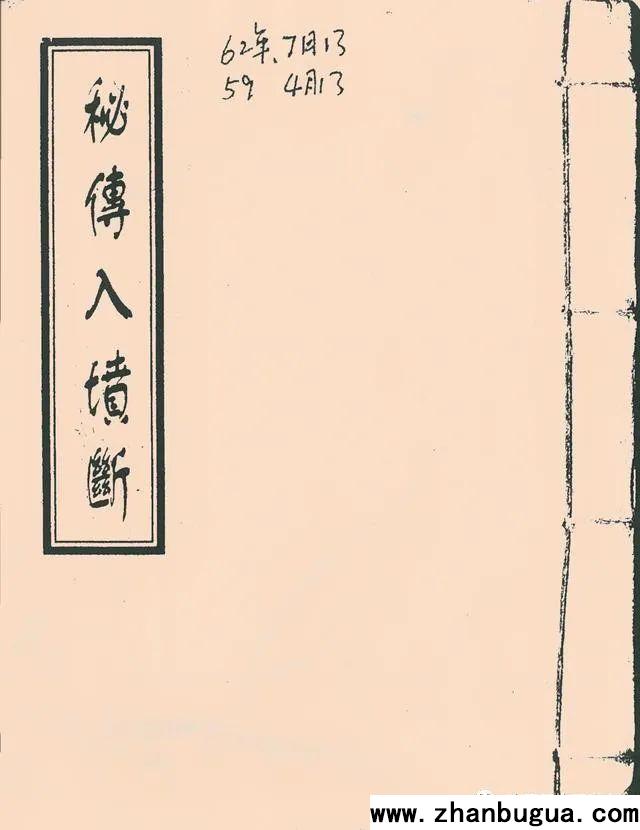 秘傳入墳斷
62年、7月13
59 4月13
www.zhanbugua.com